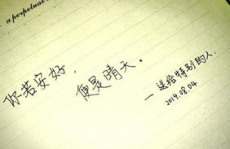 a perpetual
你若安好，
便是晴天。
—送给特别的人.
2014.08.04